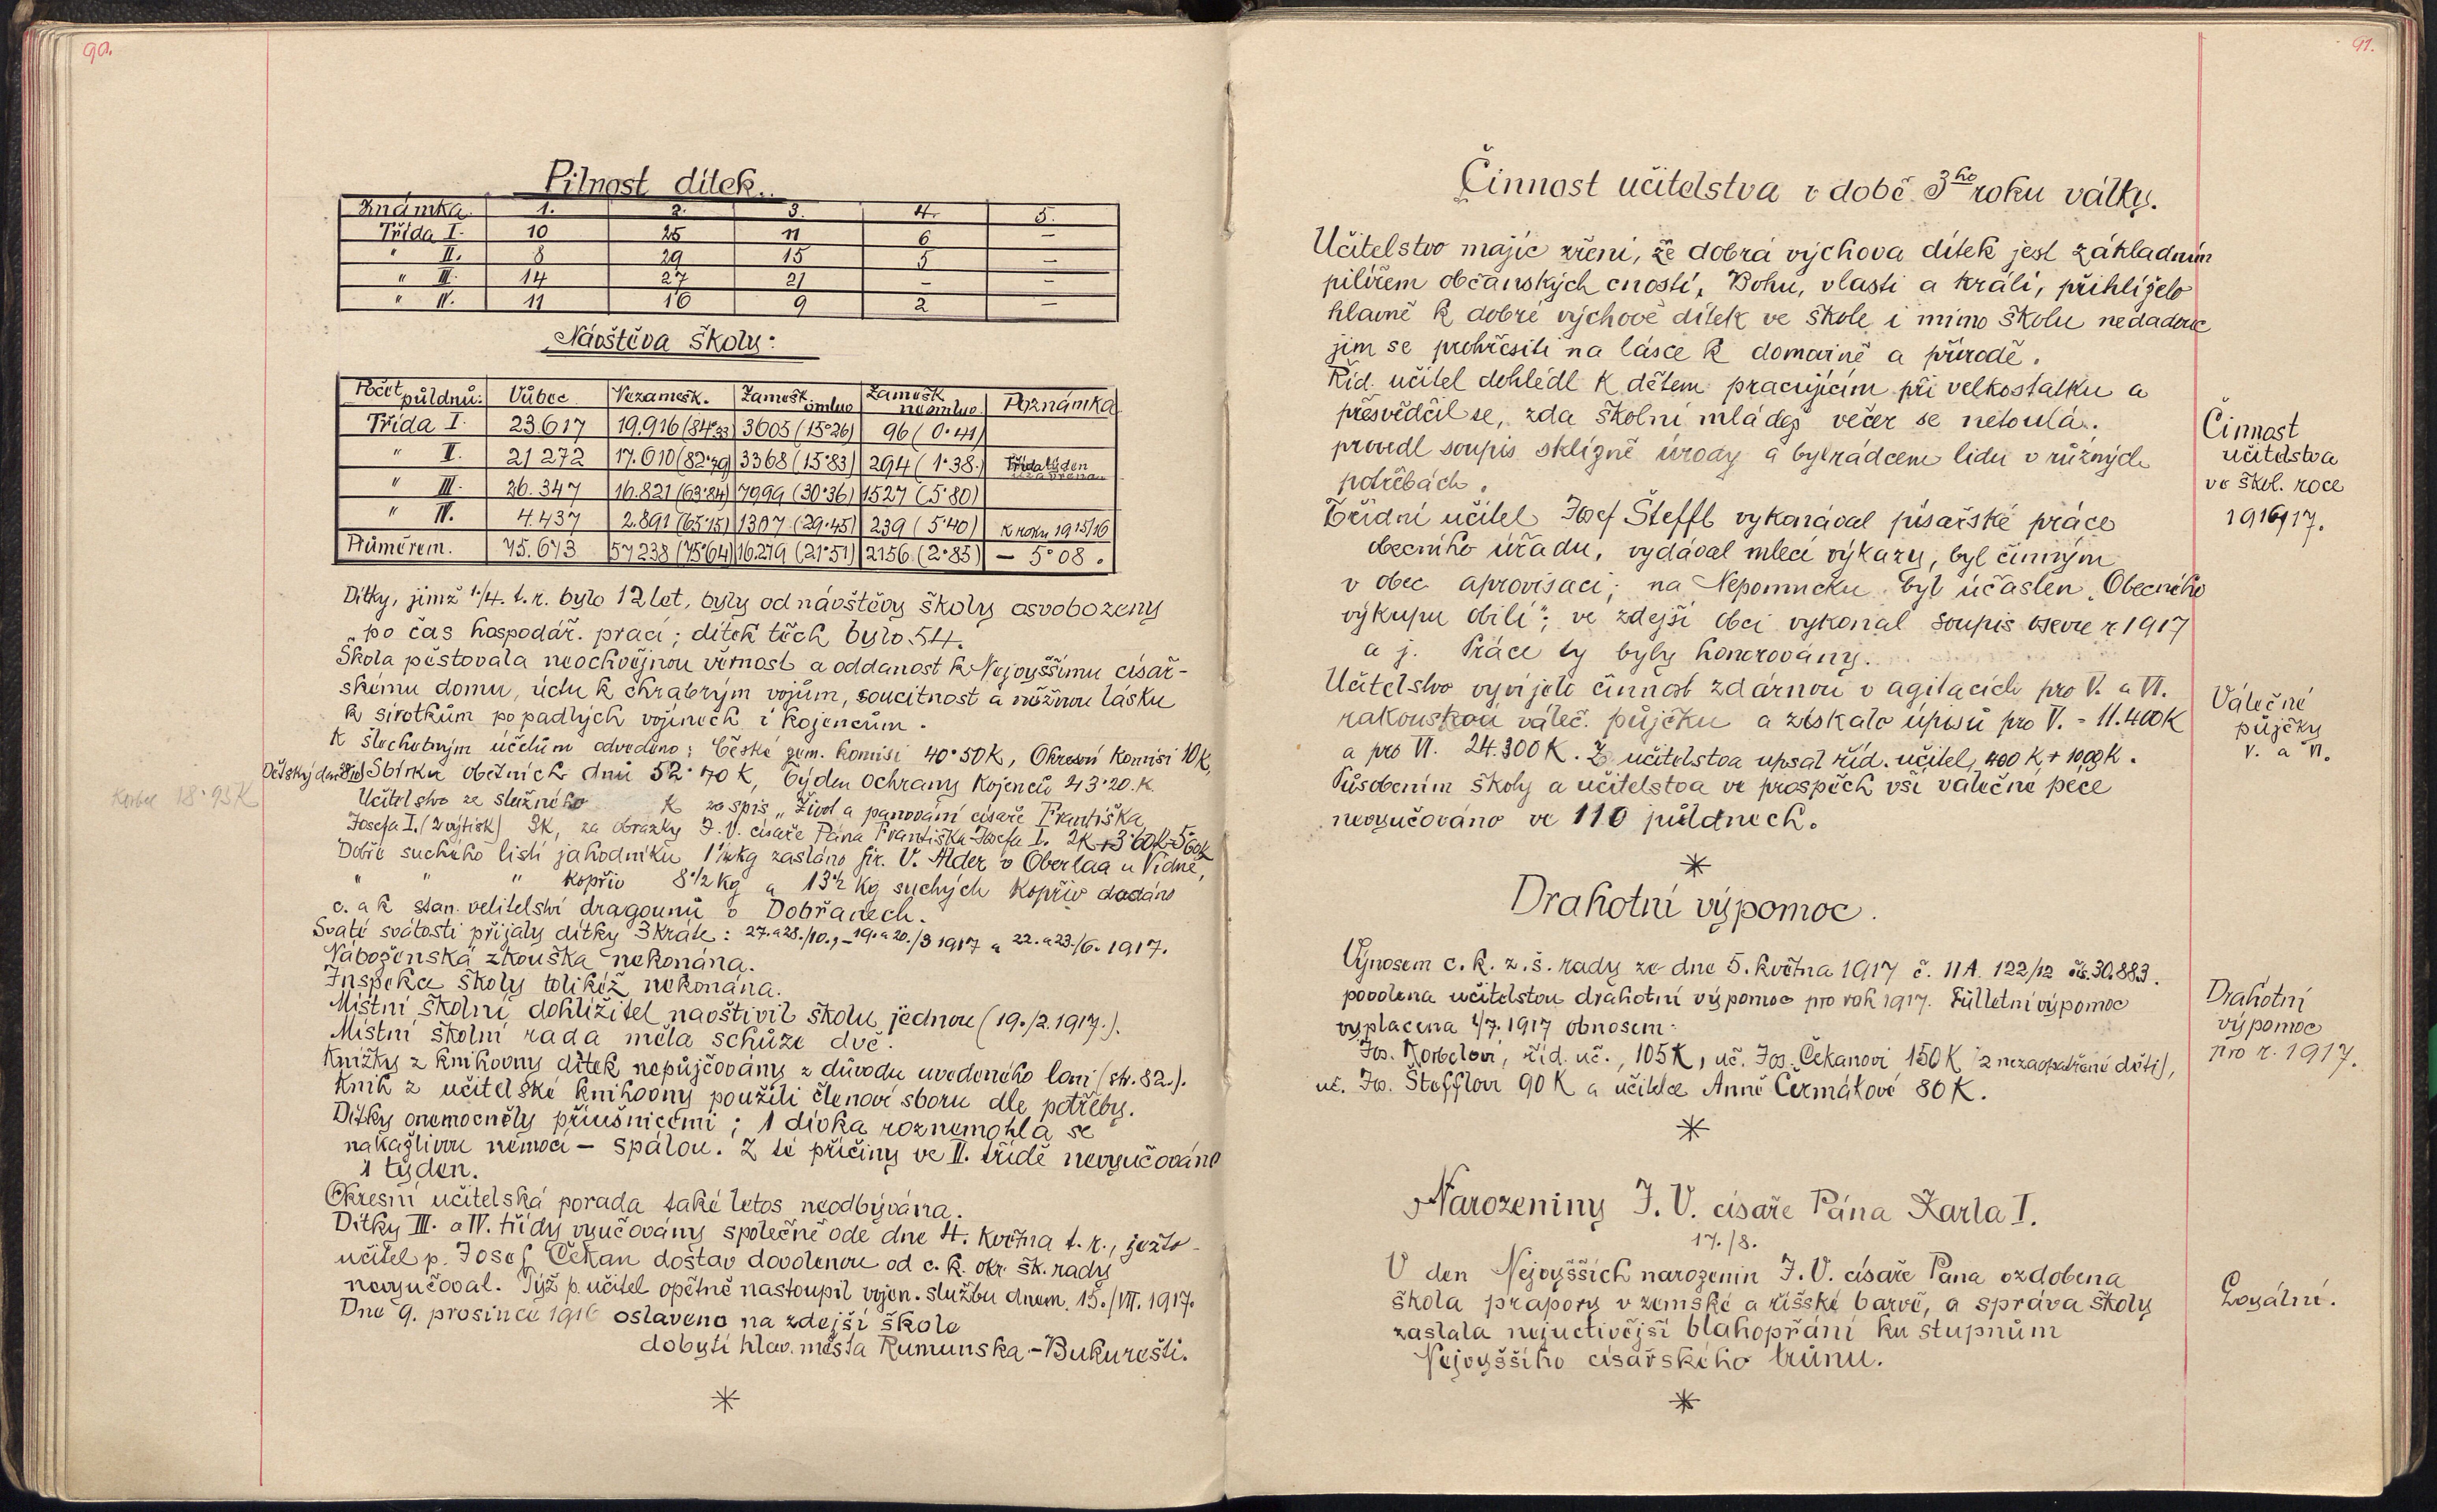 90.
Pilnost dítek.
Známka. 1. 2. 3. 4. 5.
Třída I. 10 25 11 6 —
" II. 8 29 15 5 —
" III. 14 27 21 – –
" IV. 11 16 9 2 —
Návštěva školy:
Počet půldnů: Vůbec Nezamešk. Zamešk. omluv Zamešk neomluv. Poznámka
Třída I. 23.617 19.916 (84·33) 3605 (15·26) 96 (0·41)
" II. 21 272 17.610 (82·79) 3368 (15·83) 294 (1·38.) Třída týden uzavřena.
" III. 26.347 16.821 (63·84) 7999 (30·36) 1527 (5·80)
" IV. 4.437 2.891 (65·15) 1307 (29·45) 239 (5·40) k roku 1915/16
Průměrem. 75.673 57238 (75·64) 16.279 (21·51) 2156 (2·85) — 5·08.
Dítky, jimž 1./4. t.r. bylo 12 let, byly od návštěvy školy osvobozeny
po čas hospodář. prací; dítek těch bylo 54.
Škola pěstovala neochvějnou věrnost a oddanost k Nejvyššímu císař-
skému domu, úctu k chrabrým vojům, soucitnost a něžnou lásku
k sirotkům po padlých vojínech i kojencům.
K šlechetným účelům odvedeno: České zem. komisi 40·50K, Okresní komisi 10K,
Dětský den Sbírku obětních dnů 52·70 K, Týden ochrany kojenců 43·20.K.
18·93K
Učitelstvo ze služného K za spis „Život a panování císaře Františka
Josefa I. (2 výtisk) 3K, za obrázky J.V. císaře Pána Františka Josefa I. 2K+3·60K=5·60K
Dobře suchého listí jahodníku 1 kg zasláno fir. V. Alder v Oberlaa u Vídně,
" " " kopřiv 8½ kg a 13½ kg suchých kopřiv dodáno
c. a k stan. velitelství dragounů v Dobřanech.
Svaté svátosti přijaly dítky 3kráte: 27. a 28./10., – 19. a 20./3 1917 a 22. a 23./6. 1917.
Náboženská zkouška nekonána.
Inspekce školy tolikéž nekonána.
Místní školní dohlížitel navštívil školu jednou (19./2.1917.).
Místní školní rada měla schůze dvě.
Knížky z knihovny dítek nepůjčovány z důvodu uvedeného loni (str. 82.).
Knih z učitelské knihovny použili členové sboru dle potřeby.
Dítky onemocněly příušnicemi; 1 dívka roznemohla se
nakažlivou nemocí – spálou. Z té příčiny ve II. třídě nevyučováno
1 týden.
Okresní učitelská porada také letos neodbývána.
Dítky III. a IV. třídy vyučovány společně ode dne 4. května t.r., ježto
učitel p. Josef Čekan dostav dovolenou od c.k. okr. šk. rady
nevyučoval. Týž p. učitel opětně nastoupil vojen. službu dnem 15./VII. 1917.
Dne 9. prosince 1916 oslaveno na zdejší škole
dobytí hlav. města Rumunska – Bukurešti.
91.
Činnost učitelstva v době 3ho roku války.
Učitelstvo majíc zření, že dobrá výchova dítek jest základním
pilířem občanských cností, Bohu, vlasti a králi, přihlíželo
hlavně k dobré výchově dítek ve škole i mimo školu nedadouc
jim se prohřešiti na lásce k domovině a přírodě.
Říd. učitel dohlédl k dětem pracujícím při velkostatku a
přesvědčil se, zda školní mládež večer se netoulá.
provedl soupis sklizně úrody a byl rádcem lidu v různých
potřebách.
Činnost
učitelstva
ve škol. roce
1916/17.
Třídní učitel Josef Šteffl vykonával písařské práce
obecního úřadu, vydával mlecí výkazy, byl činným
v obec aprovisaci; na Nepomucku byl účasten „Obecného
výkupu obilí"; ve zdejší obci vykonal soupis osevu r 1917
a j. Práce ty byly honorovány.
Učitelstvo vyvíjelo činnost zdárnou v agitacích pro V. a VI.
rakouskou váleč. půjčku a získalo úpisů pro V. = 11.400K
a pro VI. 24.300K. Z učitelstva upsal říd. učitel, 400 K + 1000K.
Válečné
půjčky
V. a VI.
Působením školy a učitelstva ve prospěch vší válečné péče
nevyučováno ve 110 půldnech.
Drahotní výpomoc.
Výnosem c.k. z.š. rady ze dne 5. května 1917 č. II A. 122/12 čís. 30.883.
povolena učitelstvu drahotní výpomoc pro rok 1917. Půlletní výpomoc
vyplacena 1/7. 1917 obnosem:
Jos. Korbelovi, říd. uč., 105K, uč. Jos. Čekanovi 150K (2 nezaopatřené děti),
uč. Jos. Štefflovi 90K a učitelce Anně Čermákové 80K.
Drahotní
výpomoc
pro r. 1917.
Narozeniny J.V. císaře Pána Karla I.
17./8.
V den Nejvyšších narozenin J.V. císaře Pána ozdobena
škola prapory v zemské a říšské barvě, a správa školy
zaslala nejuctivější blahopřání ku stupnům
Nejvyššího císařského trůnu.
Loyální.